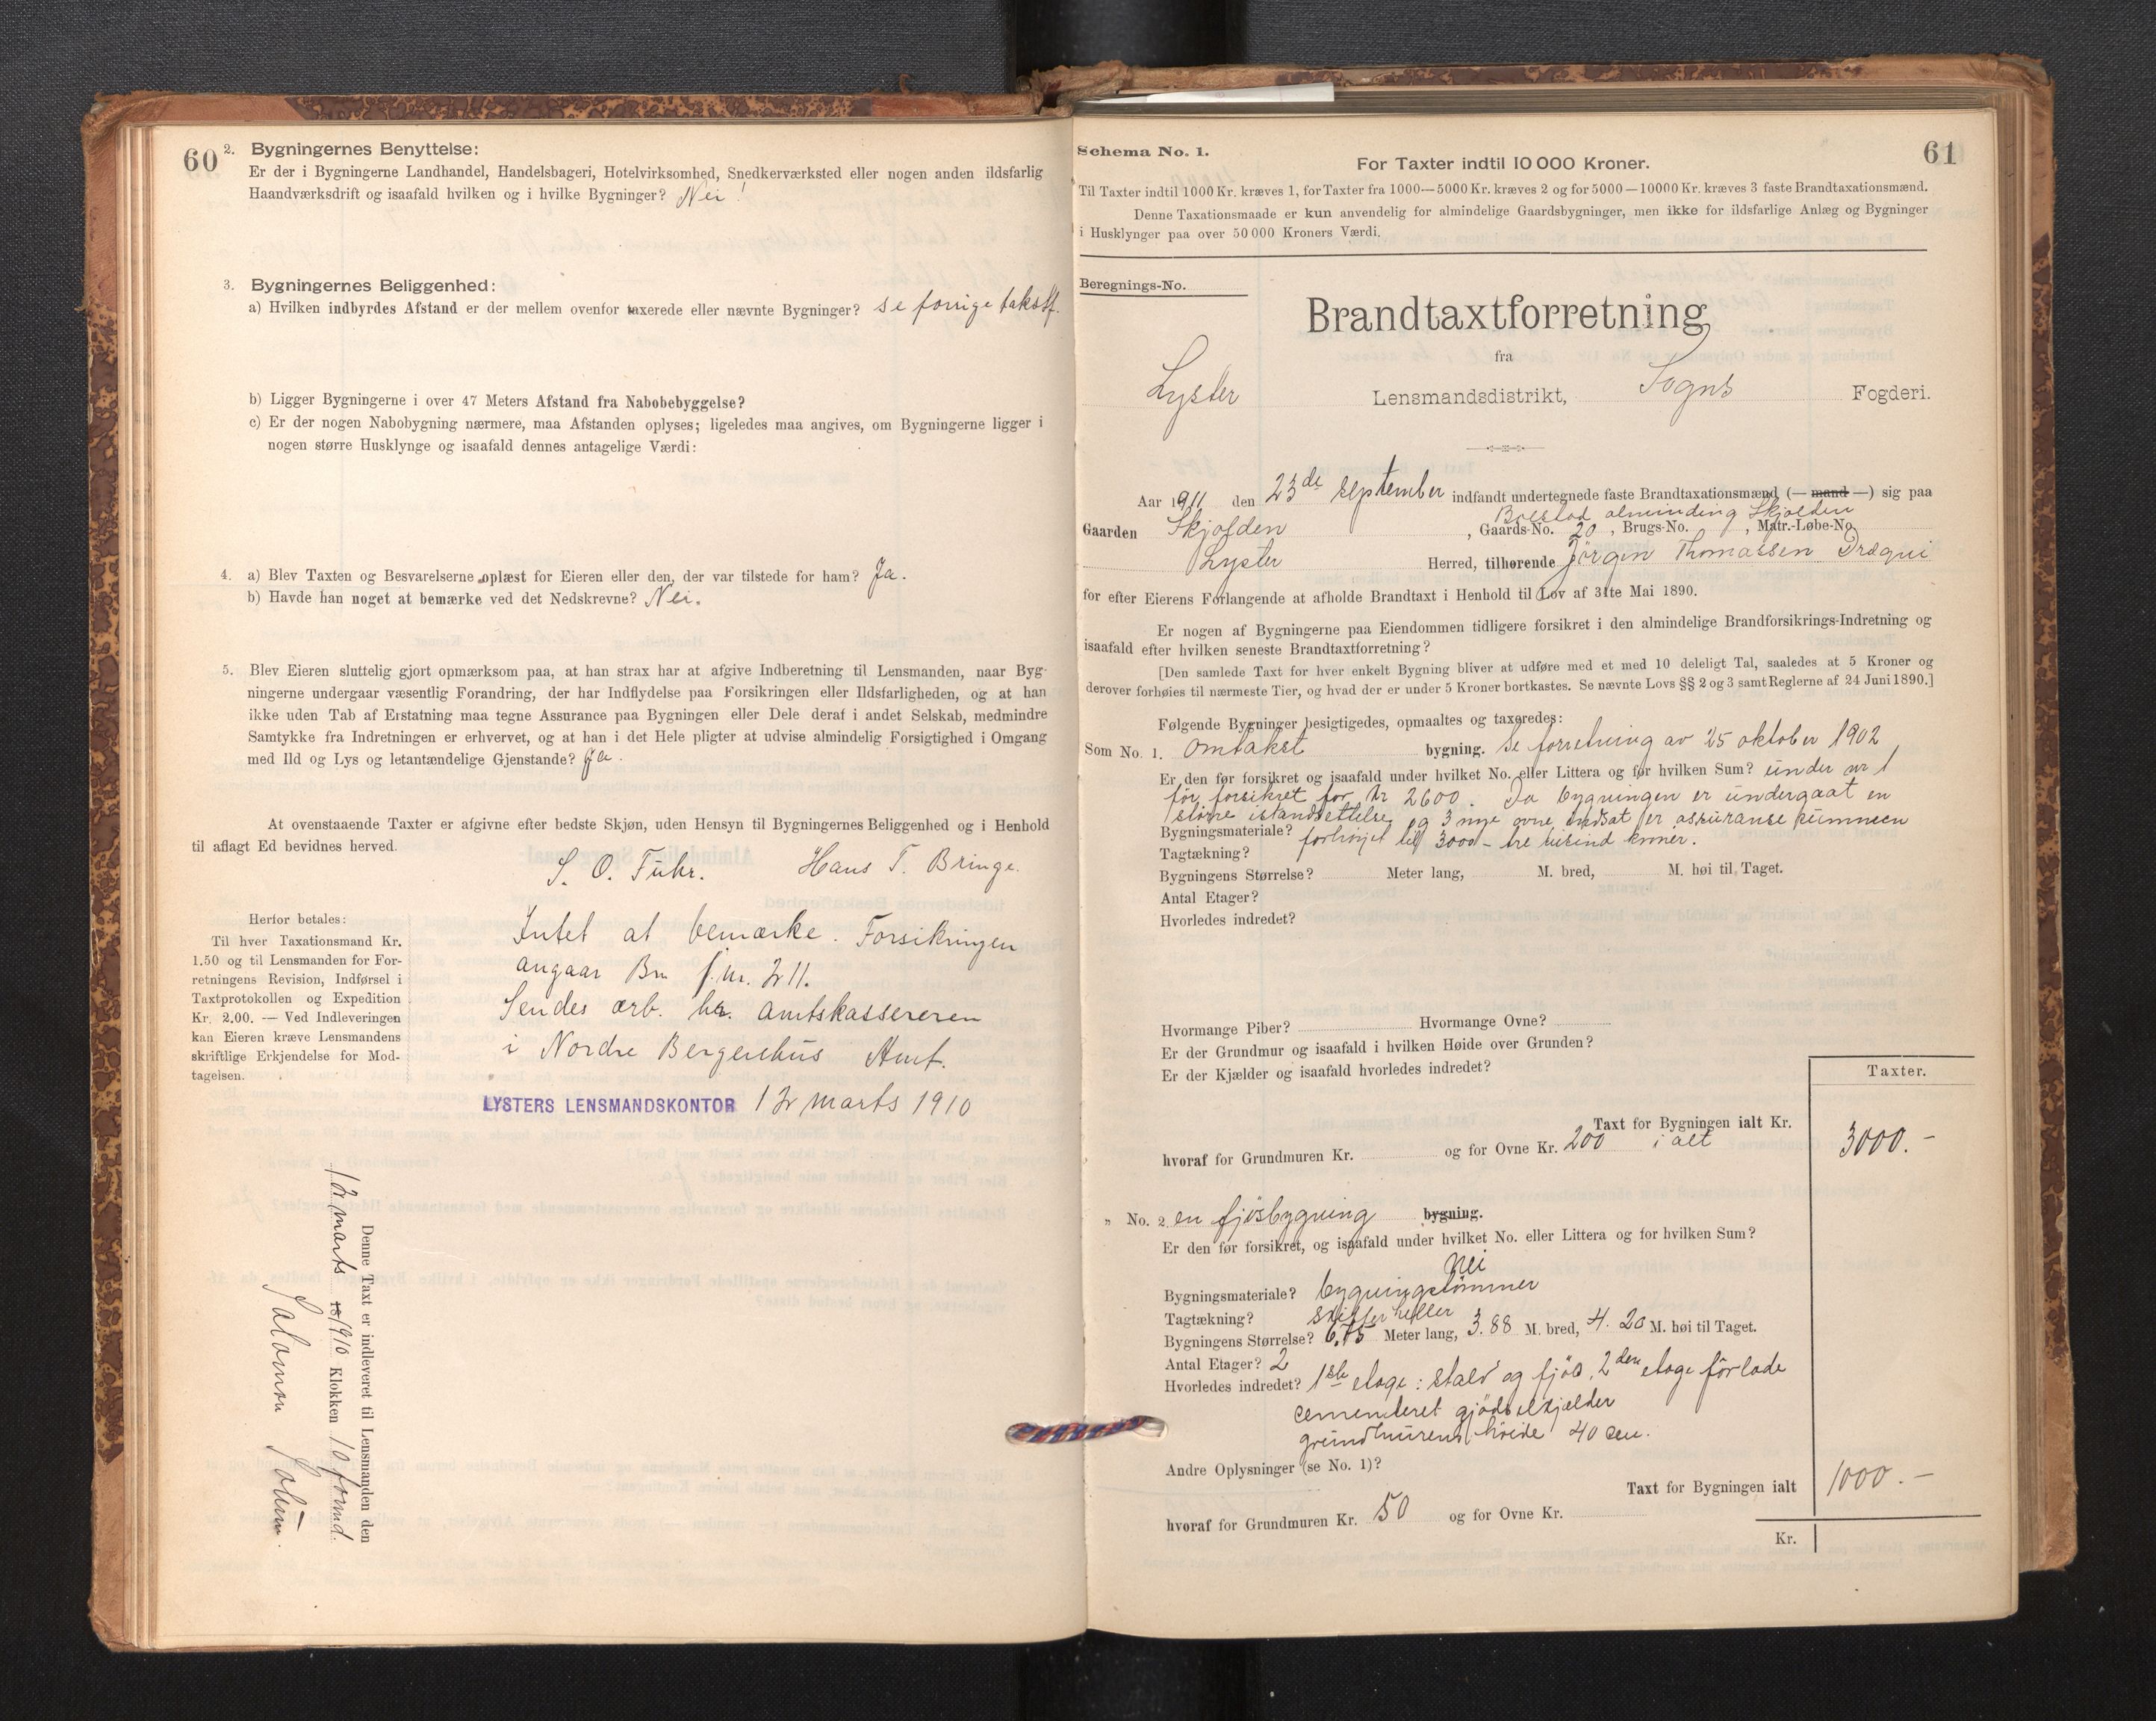 60
2. Bygningernes Benyttelse:
Er der i Bygningerne Landhandel, Handelsbageri, Hotelvirksomhed, Snedkerværksted eller nogen anden ildsfarlig
Haandværksdrift og isaafald hvilken og i hvilke Bygninger? Nei!
3. Bygningernes Beliggenhed:
a) Hvilken indbyrdes Afstand er der mellem ovenfor taxerede eller nævnte Bygninger? se forrige takstf.
b) Ligger Bygningerne i over 47 Meters Afstand fra Nabobebyggelse?
c) Er der nogen Nabobygning nærmere, maa Afstanden oplyses; ligeledes maa angives, om Bygningerne ligger i
nogen større Husklynge og isaafald dennes antagelige Værdi:
4. a) Blev Taxten og Besvarelserne oplæst for Eieren eller den, der var tilstede for ham? Ja.
b) Havde han noget at bemærke ved det Nedskrevne? Nei.
5. Blev Eieren sluttelig gjort opmærksom paa, at han strax har at afgive Indberetning til Lensmanden, naar Byg-
ningerne undergaar væsentlig Forandring, der har Indflydelse paa Forsikringen eller Ildsfarligheden, og at han
ikke uden Tab af Erstatning maa tegne Assurance paa Bygningen eller Dele deraf i andet Selskab, medmindre
Samtykke fra Indretningen er erhvervet, og at han i det Hele pligter at udvise almindelig Forsigtighed i Omgang
med Ild og Lys og letantændelige Gjenstande? Ja.
At ovenstaaende Taxter er afgivne efter bedste Skjøn, uden Hensyn til Bygningernes Beliggenhed og i Henhold
til aflagt Ed bevidnes herved.
S. O. Fuhr. Hans T. Bringe.
Herfor betales:
Til hver Taxationsmand Kr.
1.50 og til Lensmanden for For-
retningens Revision, Indførsel i
Taxtprotokollen og Expedition
Kr. 2.00. — Ved Indleveringen
kan Eieren kræve Lensmandens
skriftlige Erkjendelse for Mod-
tagelsen.
Intet at bemærke. Forsikringen
angaar Bn j.nr. 211.
Sendes ærb. hr. amtskassereren
i Nordre Bergenhus Amt.
LYSTERS LENSMANDSKONTOR 12 marts 1910
Denne Taxt er indleveret til Lensmanden den
12 marts 1910 Klokken 10 formd.
Salomon
61
Schema No. 1.
For Taxter indtil 10 000 Kroner.
Til Taxter indtil 1000 Kr. kræves 1, for Taxter fra 1000—5000 Kr. kræves 2 og for 5000—10000 Kr. kræves 3 faste Brandtaxationsmænd.
Denne Taxationsmaade er kun anvendelig for almindelige Gaardsbygninger, men ikke for ildsfarlige Anlæg og Bygninger
i Husklynger paa over 50 000 Kroners Værdi.
Beregnings-No.
Brandtaxtforretning
fra
Lyster Lensmandsdistrikt, Sogns Fogderi.
Aar 1911 den 23de september indfandt undertegnede faste Brandtaxationsmænd (— mand —) sig paa
Bolstad alminding Skjolden
Gaarden Skjolden, Gaards-No. 20, Brugs-No. , Matr.-Løbe-No.
Lyster Herred, tilhørende Jørgen Thomassen Drægni
for efter Eierens Forlangende at afholde Brandtaxt i Henhold til Lov af 31te Mai 1890.
Er nogen af Bygningerne paa Eiendommen tidligere forsikret i den almindelige Brandforsikrings-Indretning og
isaafald efter hvilken seneste Brandtaxtforretning?
[Den samlede Taxt for hver enkelt Bygning bliver at udføre med et med 10 deleligt Tal, saaledes at 5 Kroner og
derover forhøies til nærmeste Tier, og hvad der er under 5 Kroner bortkastes. Se nævnte Lovs §§ 2 og 3 samt Reglerne af 24 Juni 1890.]
Følgende Bygninger besigtigedes, opmaaltes og taxeredes:
Som No. 1. omtakst bygning. Se forretning av 25 oktober 1902
Er den før forsikret og isaafald under hvilket No. eller Littera og for hvilken Sum? under nr 1
før forsikret for kr 2600. Da bygningen er undergaat en
større istandsettelse og 3 nye ovne indsat er assuranse summen
Bygningsmateriale? forhøyet til 3000 – tre tusind kroner.
Tagtækning?
Bygningens Størrelse? Meter lang, M. bred, M. høi til Taget.
Antal Etager?
Hvorledes indredet?
Hvormange Piber? Hvormange Ovne?
Er der Grundmur og isaafald i hvilken Høide over Grunden?
Er der Kjælder og isaafald hvorledes indredet?
Taxter.
Taxt for Bygningen ialt Kr.
hvoraf for Grundmuren Kr. og for Ovne Kr. 200 i alt 3000.–
" No. 2. en fjøsbygning bygning.
Er den før forsikret, og isaafald under hvilket No. eller Littera og for hvilken Sum?
Nei
Bygningsmateriale? bygningstømmer
Tagtækning? skifferheller
Bygningens Størrelse? 6.75 Meter lang, 3.88 M. bred, 4.20 M. høi til Taget.
Antal Etager? 2
Hvorledes indredet? 1ste etage: stald og fjøs, 2den etage förlade
cementeret gjødselkjælder
grundmurens høide 40 cm.
Andre Oplysninger (se No. 1)?
Taxt for Bygningen ialt 1000.–
hvoraf for Grundmuren Kr. 50 og for Ovne Kr.
Kr.